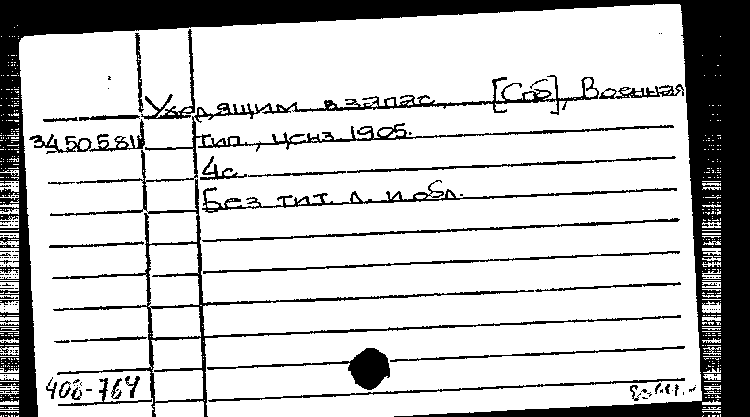 Уходящим в запас. [Спб], Военная
34.50.5.811 тип., ценз. 1905.
4с.
Без тит. л. и обл.
408-764